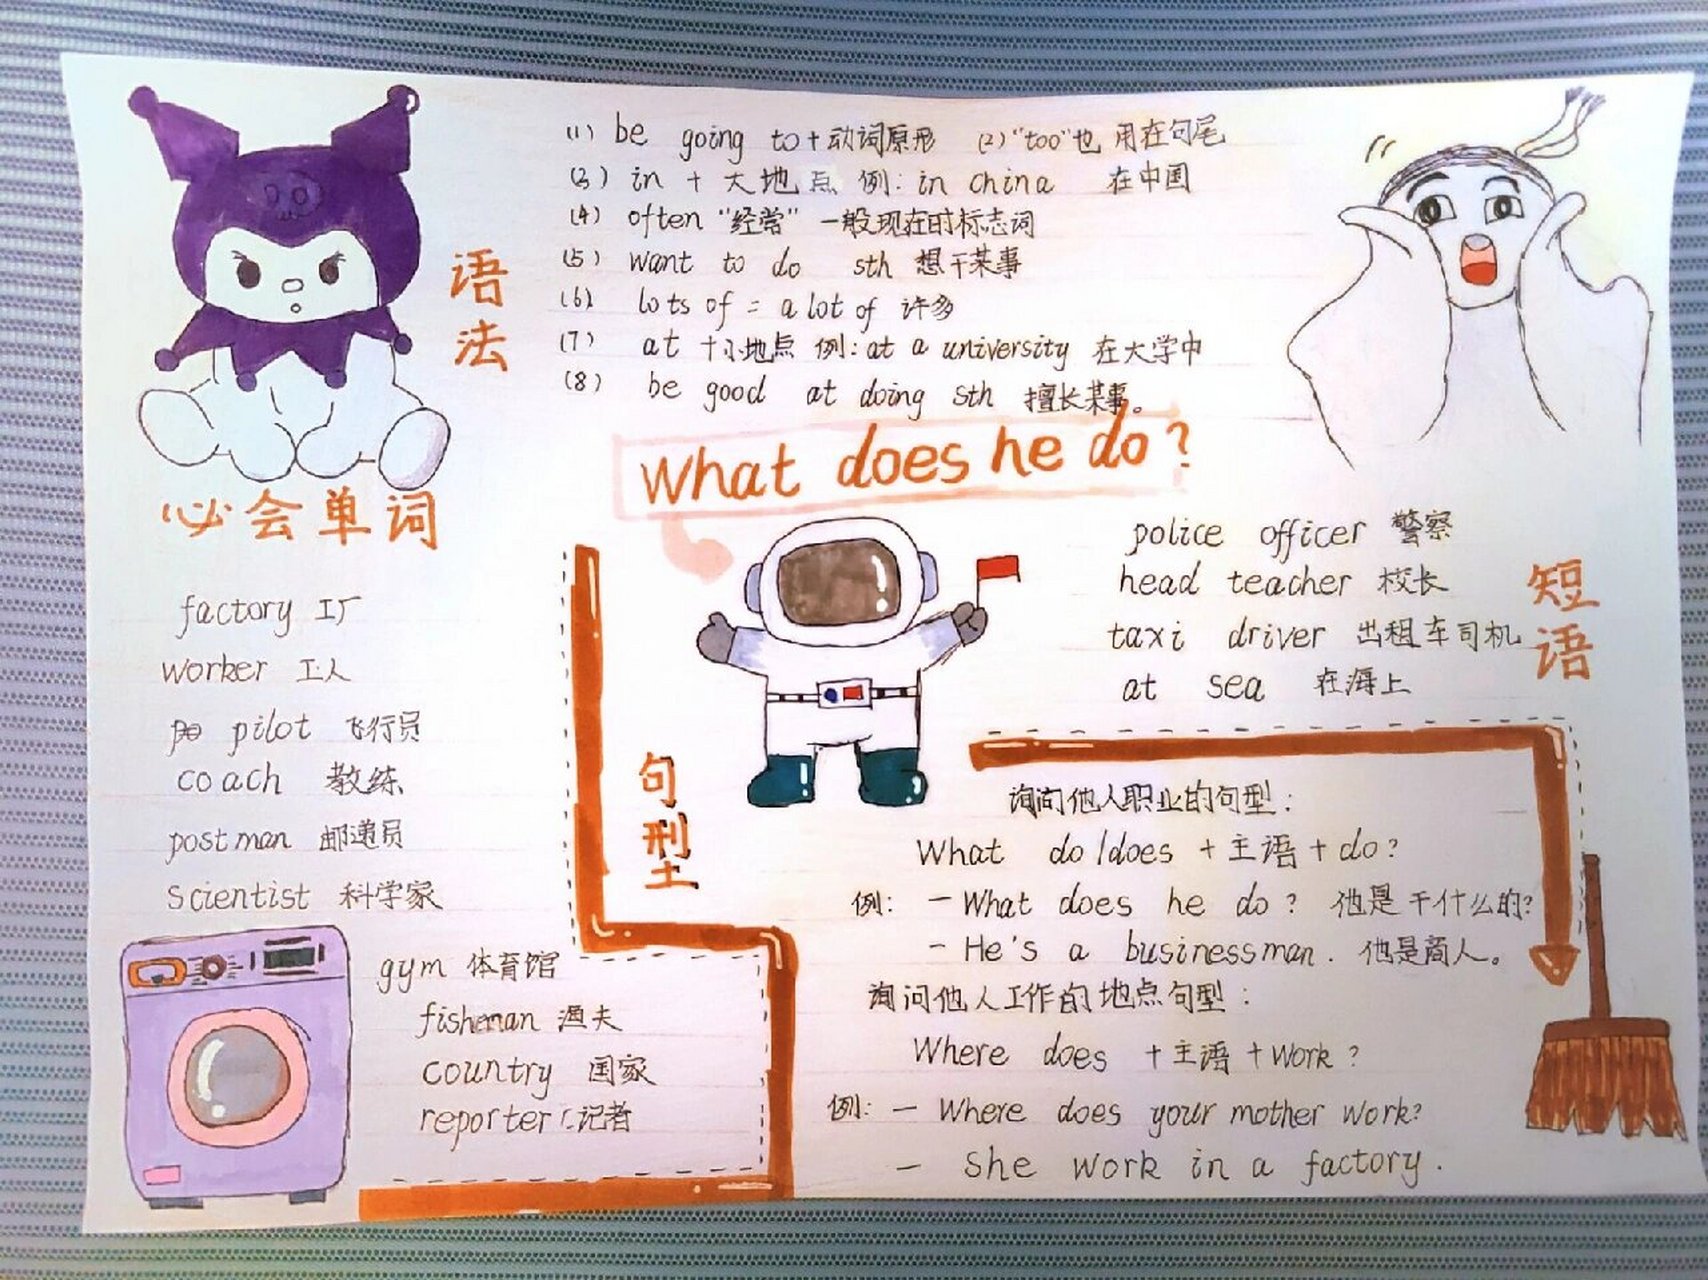 语法
(1) be going to + 动词原形 (2) "too"也 用在句尾
(3) in + 大地点 例: in china 在中国
(4) often "经常" 一般现在时标志词
(5) want to do sth 想干某事
(6) lots of = a lot of 许多
(7) at + 小地点 例: at a university 在大学中
(8) be good at doing sth 擅长某事。
What does he do?
必会单词
factory 工厂
worker 工人
pilot 飞行员
coach 教练
postman 邮递员
scientist 科学家
gym 体育馆
fisheman 渔夫
country 国家
reporter 记者
短语
police officer 警察
head teacher 校长
taxi driver 出租车司机
at sea 在海上
句型
询问他人职业的句型:
What do/does + 主语 + do?
例: - What does he do? 他是干什么的?
- He's a businessman. 他是商人。
询问他人工作的地点句型:
Where does + 主语 + work?
例: - Where does your mother work?
- She work in a factory.